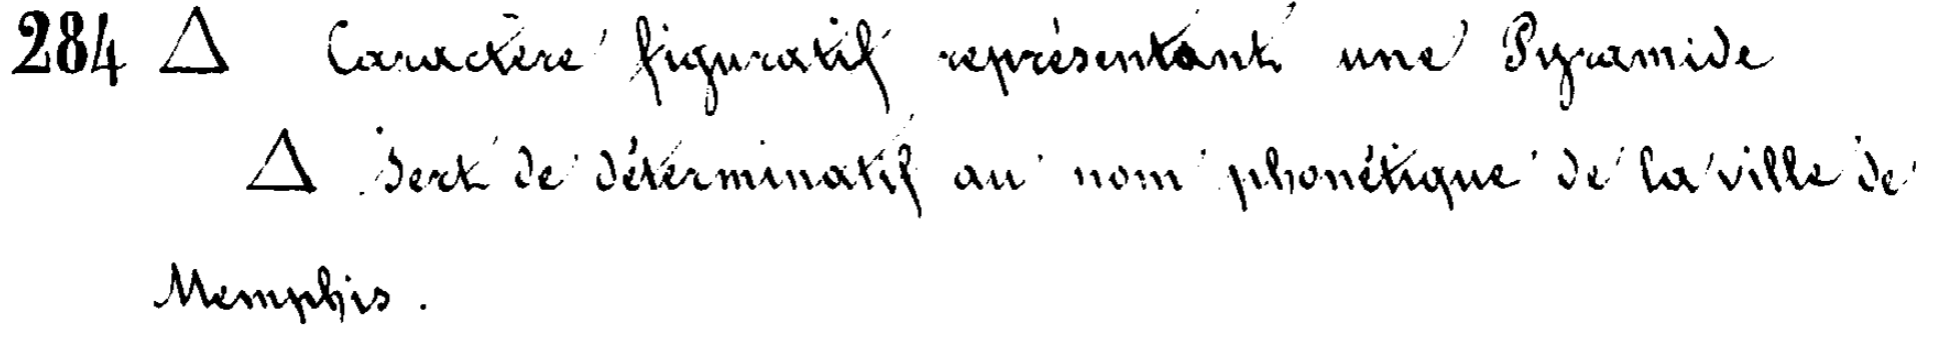 284 △ Caractère figuratif représentant une Pyramide
△ Sert de déterminatif au nom phonétique de la ville de
Memphis.